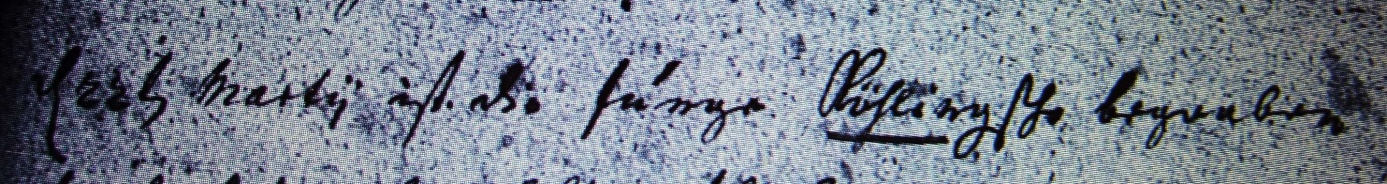 d 22ty Martij ist die junge Röhlingsche begraben